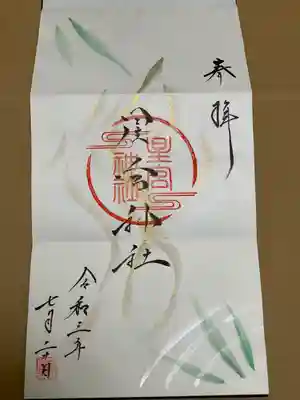 奉拝
星宮神社
星宮神社
令和三年
七月二十日